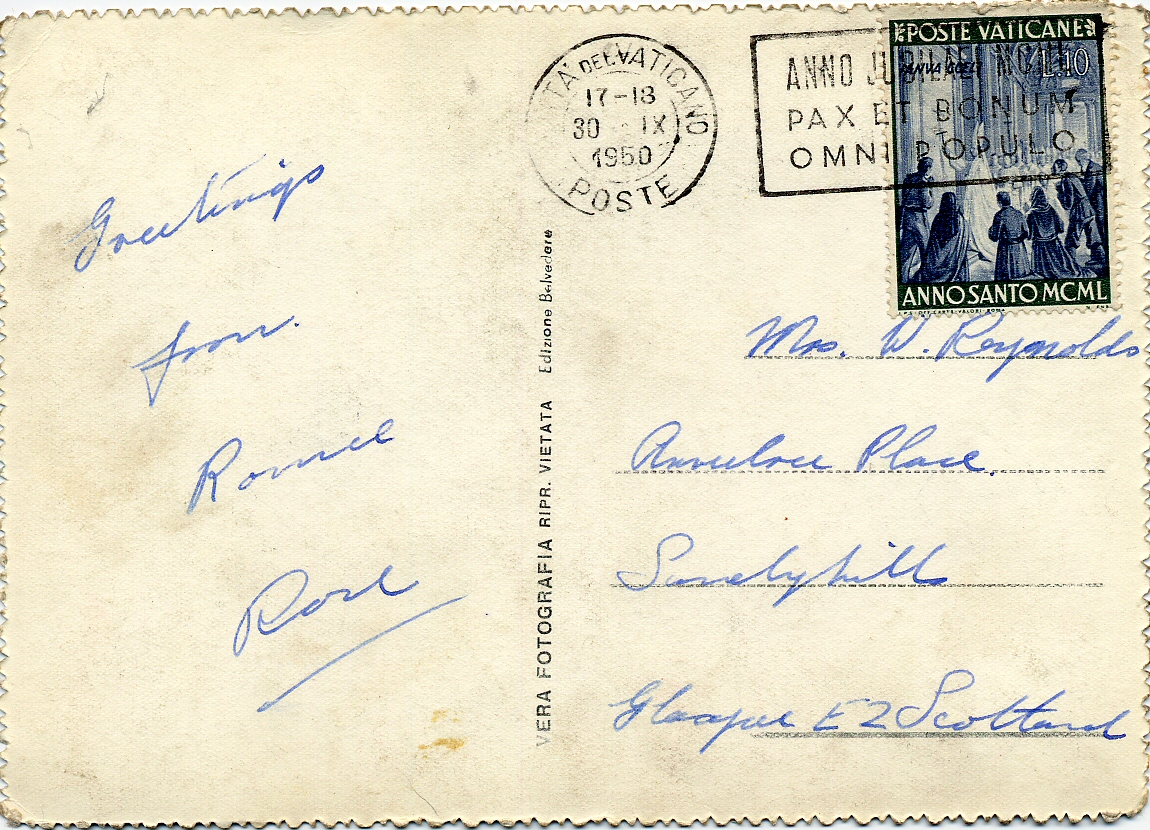 Greetings
from
Rome
Rose
VERA FOTOGRAFIA RIPR. VIETATA Edizione Belvedere
CITTÀ DEL VATICANO
17-18
30 IX
1950
POSTE
ANNO JUBILAEI MCML
PAX ET BONUM
OMNI POPULO
POSTE VATICANE
L.10
ANNO SANTO MCML
Mrs. W. Reynolds
Place.
Sandyhills
Glasgow E2 Scotland